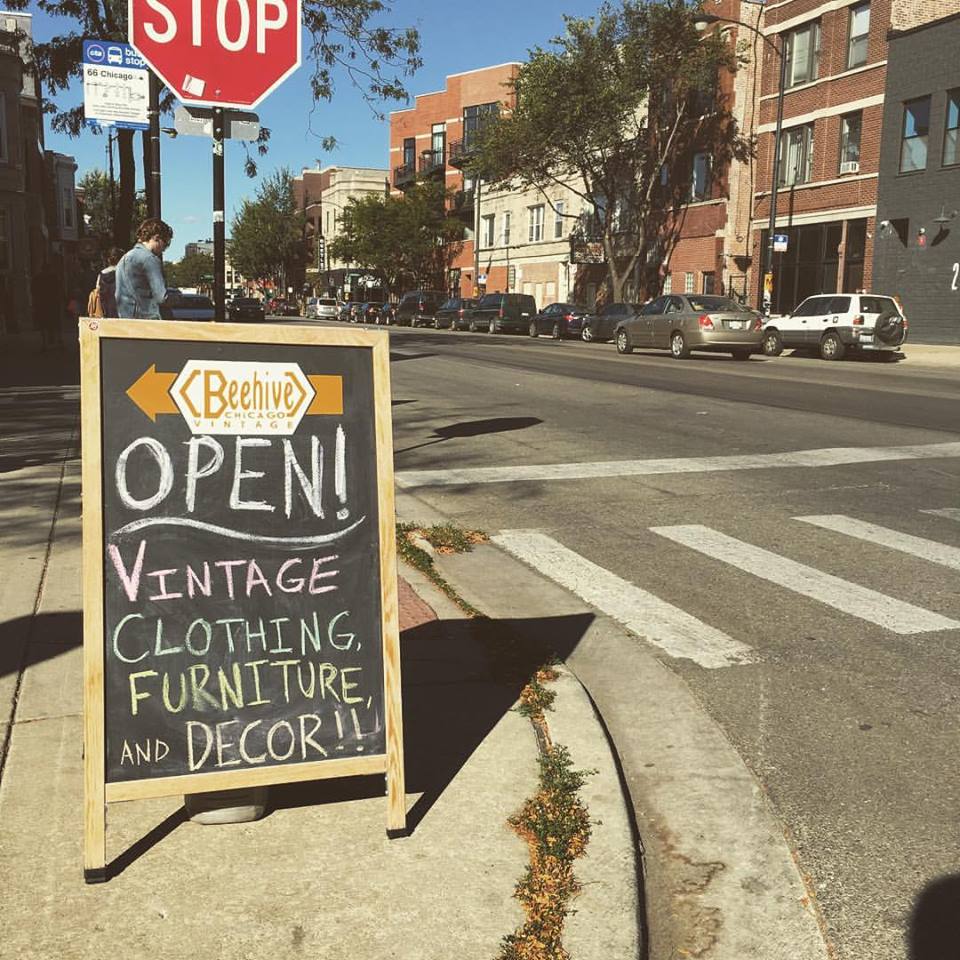 STOP
cta bus stop
66 Chicago
Beehive
CHICAGO
VINTAGE
OPEN!
VINTAGE
CLOTHING,
FURNITURE,
AND DECOR!!
2